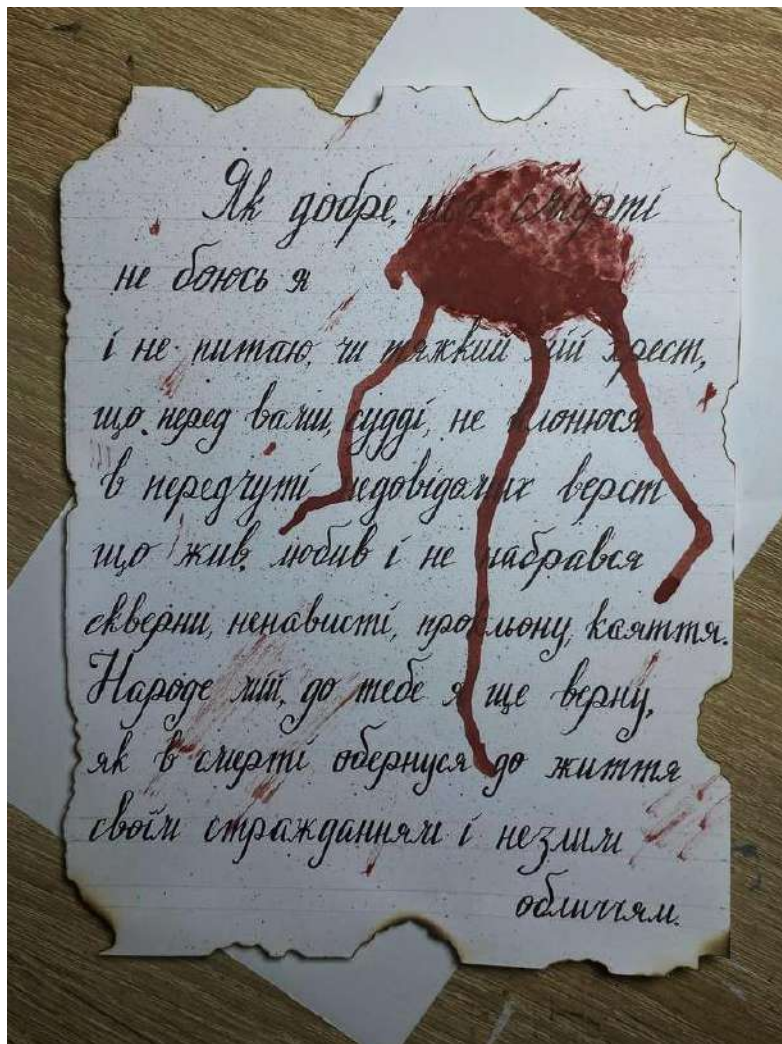 Як добре, що смерті
не боюсь я
і не питаю, чи тяжкий мій хрест,
що перед вами, судді, не клонюся
в передчутті недовідомих верст
що жив, любив і не набрався
скверни, ненависті, прокльону, каяття.
Народе мій, до тебе я ще верну,
як в смерті обернуся до життя
своїм стражданням і незлим
обличчям.